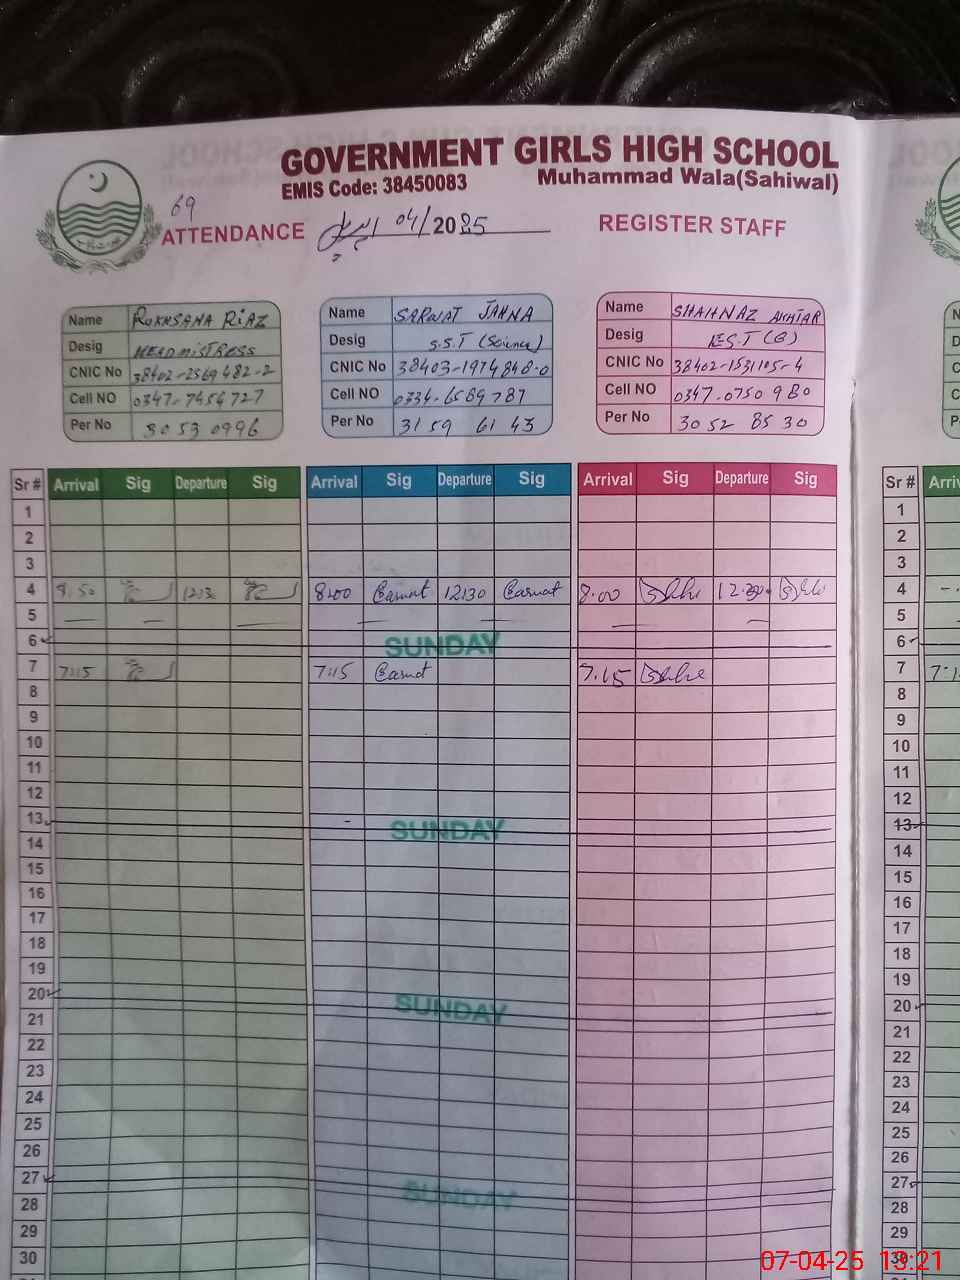 GOVERNMENT GIRLS HIGH SCHOOL
EMIS Code: 38450083 Muhammad Wala(Sahiwal)
69
ATTENDANCE اپریل 04/2025 REGISTER STAFF
Name RUKHSANA RIAZ
Desig HEADMISTRESS
CNIC No 38402-2569482-2
Cell NO 0347-7454727
Per No 3053 0996
Name SARWAT JAHNA
Desig S.S.T (Science)
CNIC No 38403-1974848-0
Cell NO 0334-6589787
Per No 3159 61 43
Name SHAHNAZ AKHTAR
Desig E.S.T (G)
CNIC No 38402-1531105-4
Cell NO 0347-0750980
Per No 3052 85 30
Sr # Arrival Sig Departure Sig Arrival Sig Departure Sig Arrival Sig Departure Sig Sr #
1 1
2 2
3 3
4 8.50 12:30 8:00 Sarwat 12:30 Sarwat 8.00 12.30 4
5 5
6 SUNDAY 6
7 7:15 7:15 Sarwat 7.15 7
8 8
9 9
10 10
11 11
12 12
13 SUNDAY 13
14 14
15 15
16 16
17 17
18 18
19 19
20 SUNDAY 20
21 21
22 22
23 23
24 24
25 25
26 26
27 SUNDAY 27
28 28
29 29
30 30
07-04-25 13:21